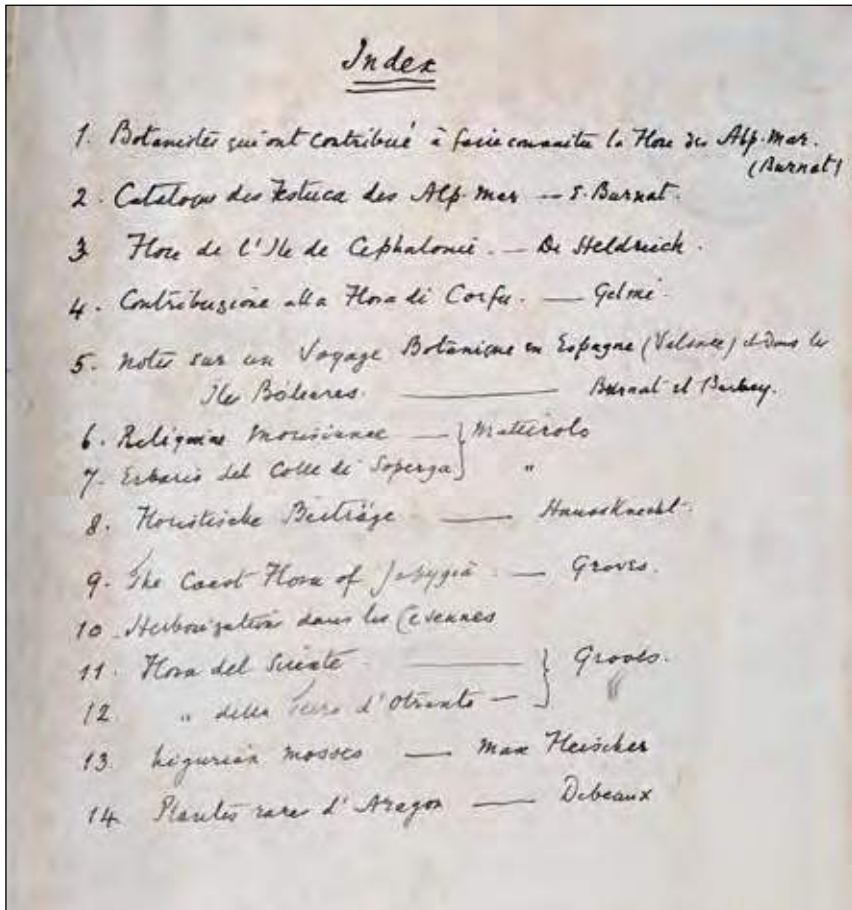 Index
1. Botanistes qui ont contribué à faire connaitre la Flore des Alp. Mar.
(Burnat)
2. Catalogue des Festuca des Alp. Mar — E. Burnat.
3 Flore de l'Ile de Cephalonie. — De Heldreich.
4. Contribuzione alla Flora di Corfu. — Gelmi.
5. Notes sur un Voyage Botanique en Espagne (Valence) et dans les
Iles Baleares. — Burnat et Barbey.
6. Reliquiae Morisianae — } Mattirolo
7. Erbario del Colle di Soperga } "
8. Floristische Beiträge — Haussknecht.
9. The Coast Flora of Japygia — Groves.
10. Herborizations dans les Cevennes
11. Flora del — } Groves.
12 " della Terra d'Otranto — } "
13. Ligurian Mosses — Max Fleischer
14. Plantes rares d'Aragon — Debeaux